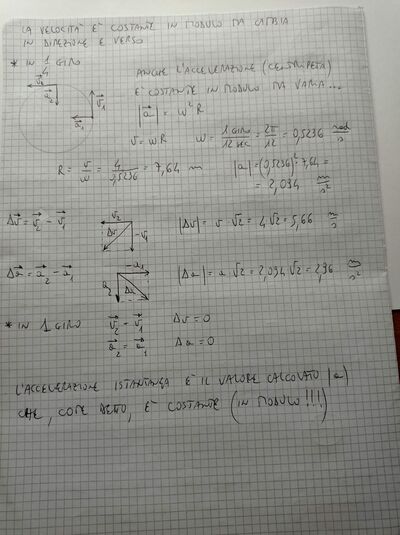 LA VELOCITÀ È COSTANTE IN MODULO MA CAMBIA
IN DIREZIONE E VERSO
* IN 1/4 GIRO
v⃗2
a⃗2
v⃗1
a⃗1
ANCHE L'ACCELERAZIONE (CENTRIPETA)
E' COSTANTE IN MODULO MA VARIA...
|a⃗| = ω²R
v = ωR ω = 1 GIRO/12 SEC = 2π/12 = 0,5236 rad/s
R = v/ω = 4/0,5236 = 7,64 m |a| = (0,5236)²·7,64 =
= 2,094 m/s²
Δv⃗ = v⃗2 - v⃗1 v2 Δv -v1 |Δv| = v·√2 = 4√2 = 5,66 m/s
Δa⃗ = a⃗2 - a⃗1 -a1 a2 Δa |Δa| = a√2 = 2,094√2 = 2,96 m/s²
* IN 1 GIRO v⃗2 = v⃗1 Δv = 0
a⃗2 = a⃗1 Δa = 0
L'ACCELERAZIONE ISTANTANEA È IL VALORE CALCOLATO |a|
CHE, COME DETTO, E' COSTANTE (IN MODULO!!!)